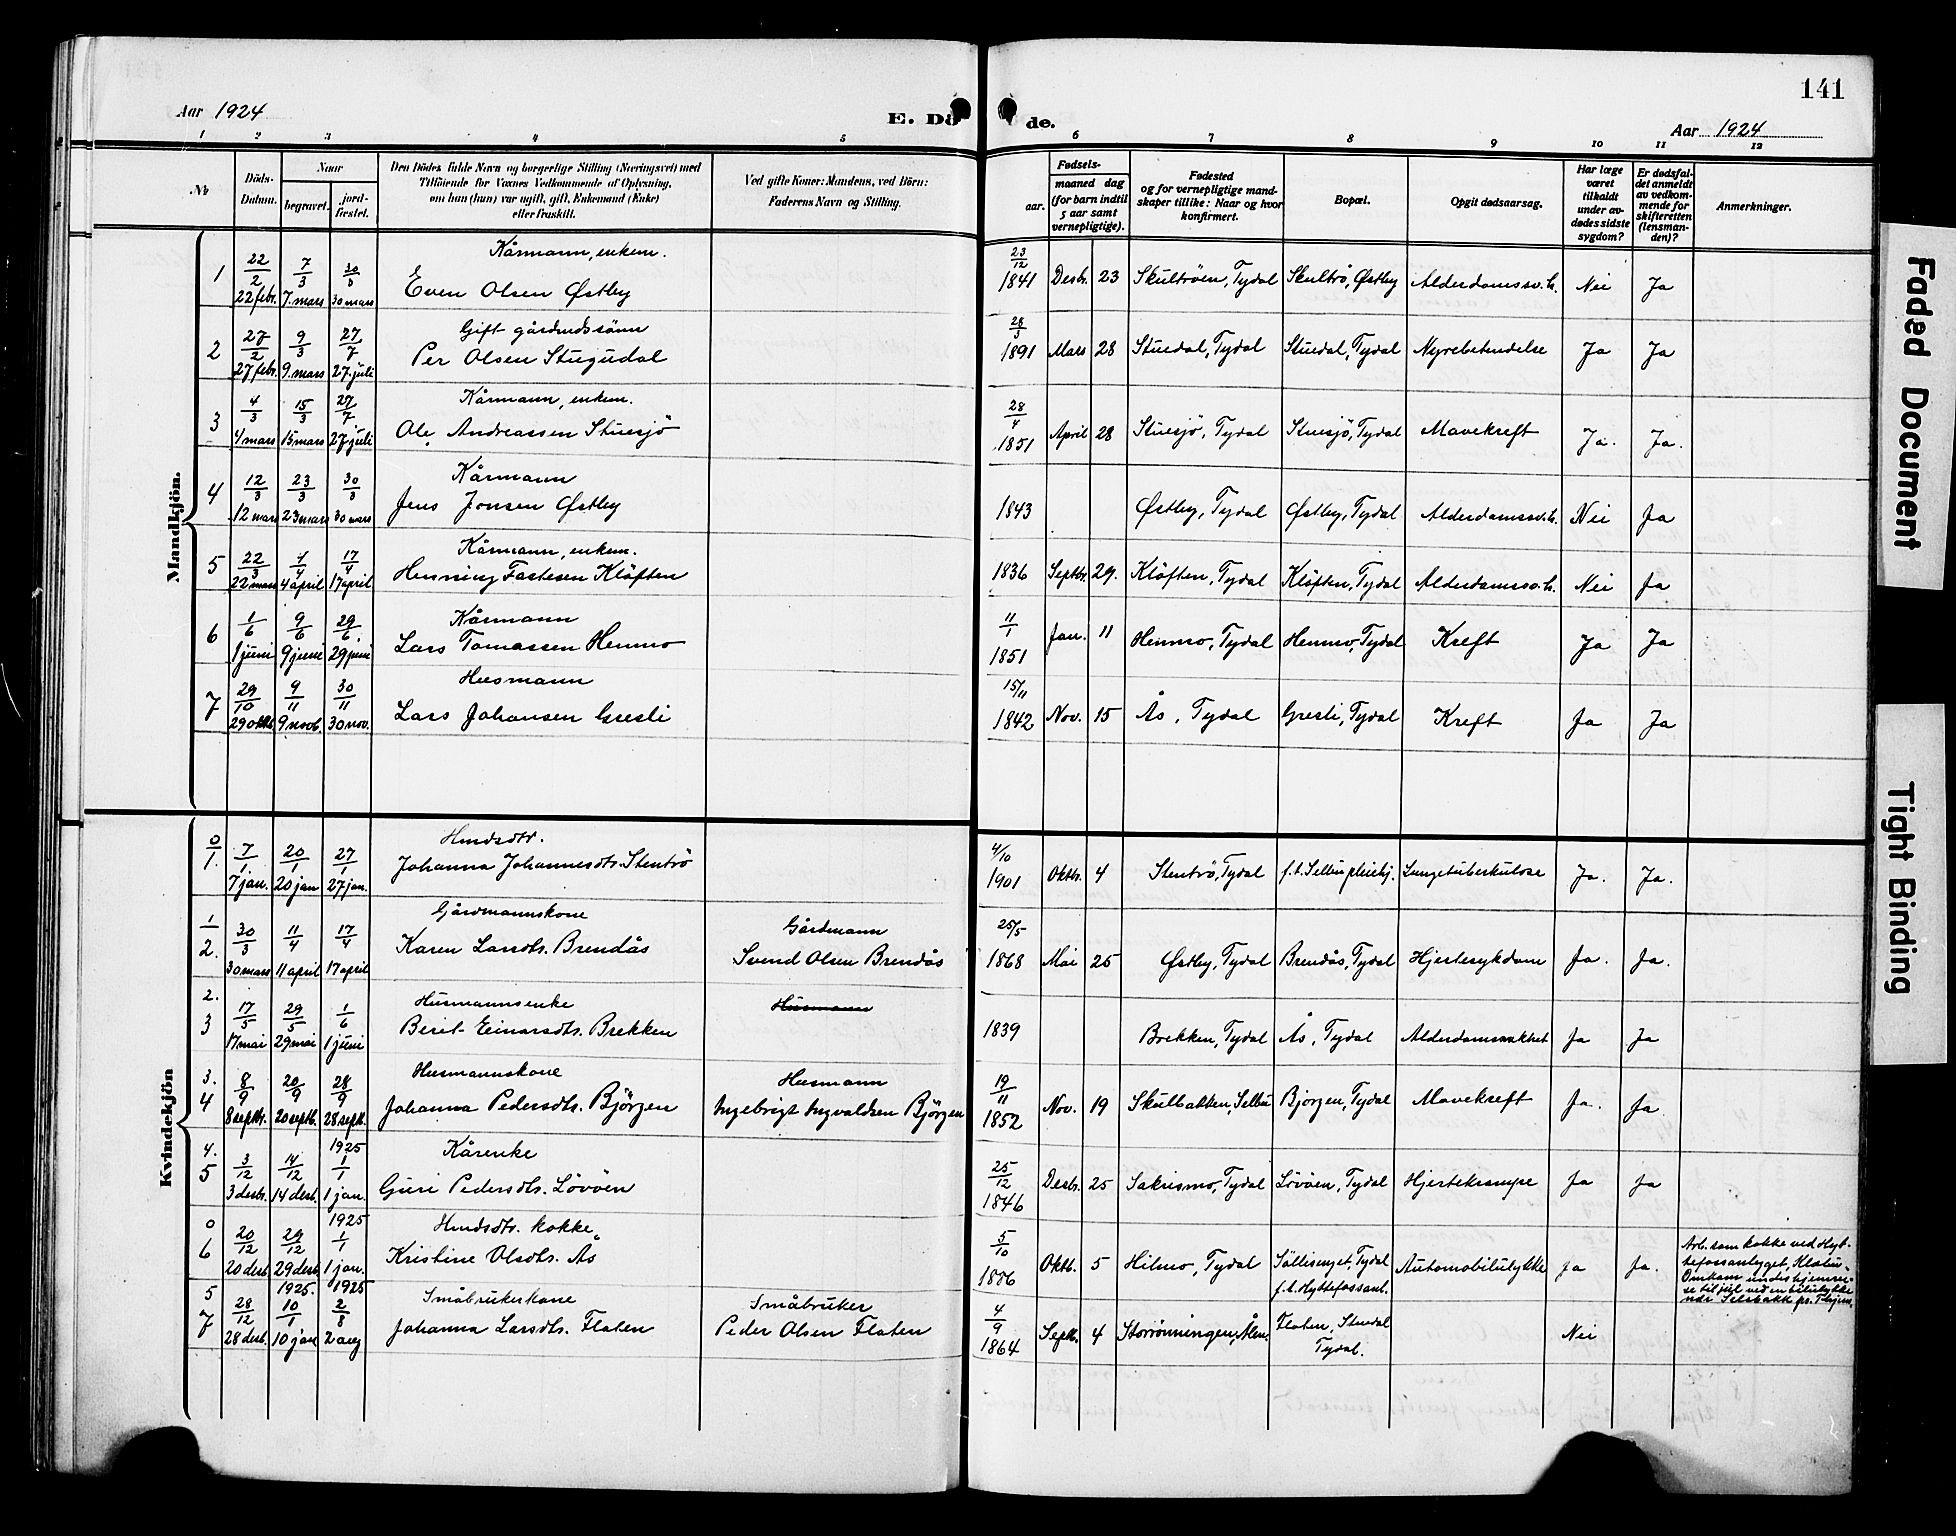 141
Aar 1924
E. Dö
de.
Aar 1924
1 2 3 4 5 6 7 8 9 10 11 12
No
Döds-
Datum.
Naar
begravet.
jord-
fæstet.
Den Dödes fulde Navn og borgerlige Stilling (Næringsvei) med
Tilföiende for Voxnes Vedkommende af Oplysning,
om han (hun) var ugift, gift, Enkemand (Enke)
eller fraskilt.
Ved gifte Koner: Mandens, ved Börn:
Faderens Navn og Stilling.
Fødsels-
aar.
maaned dag
(for barn indtil
5 aar samt
vernepligtige).
Fødested
og for vernepligtige mand-
skaper tillike: Naar og hvor
konfirmert.
Bopæl.
Opgit dødsaarsag.
Har læge
været
tilkaldt
under av-
dødes sidste
sygdom?
Er dødsfal-
det anmeldt
av vedkom-
mende for
skifteretten
(lensman-
den)?
Anmerkninger.
Mandkjön.
1 22/2 7/3 30/3 Kårmann, enkem. 23/12
22 febr. 7. mars 30 mars Even Olsen Østby 1841 Desbr. 23 Skultröen, Tydal Skultrö, Østby Alderdomssv.h. Nei Ja
2 27/2 9/3 27/7 Gift gårdmdssönn 28/3
27 febr. 9. mars 27. juli Per Olsen Stugudal 1891 Mars 28 Stuedal, Tydal Stuedal, Tydal Nyrebetendelse Ja Ja
3 4/3 15/3 27/7 Kårmann, enkem. 28/4
4 mars 15 mars 27 juli Ole Andreassen Stuesjö 1851 April 28 Stuesjö, Tydal Stuesjö, Tydal Mavekreft Ja. Ja.
4 12/3 23/3 30/3 Kårmann
12 mars 23 mars 30 mars Jens Jonsen Østby 1843 Østby, Tydal Østby, Tydal Alderdomssv.h. Nei Ja
5 22/3 4/4 17/4 Kårmann, enkem.
22 mars 4 april 17 april Henning Fastesen Klöften 1836 Septbr. 29. Klöften, Tydal Klöften, Tydal Alderdomssv.h. Nei Ja
6 1/6 9/6 29/6 Kårmann 11/1
1 juni 9 juni 29 juni Lars Tomassen Henmo 1851 Jan. 11 Henmo, Tydal Henmo, Tydal Kreft Ja Ja
7 29/10 9/11 30/11 Husmann 15/11
29 oktb. 9 novb. 30 nov. Lars Johansen Gresli 1842 Nov. 15 Ås, Tydal Gresli, Tydal Kreft Ja Ja
Kvindekjön
0/1. 7/1 20/1 27/1 Hmdsdtr. 4/10
7 jan. 20 jan 27 jan. Johanna Johannesdts. Stentrö 1901 Oktbr. 4 Stentrö, Tydal f.t. Selbu pleiehj. Lungetuberkulose Ja. Ja.
1/2. 30/3 11/4 17/4 Gårdmannskone Gårdmann 25/5
30 mars 11 april 17 april Karen Larsdts. Brendås Svend Olsen Brendås 1868 Mai 25 Østby, Tydal Brendås, Tydal Hjertesykdom Ja. Ja.
2. 3 17/5 29/5 1/6 Husmannsenke Husmann
17 mai 29 mai 1 juni Berit Einarsdts. Brekken 1839 Brekken, Tydal Ås, Tydal Alderdomssvakhet Ja Ja
3. 4 8/9 20/9 28/9 Husmannskone Husmann 19/11
8 septbr. 20 septb. 28 septb. Johanna Pedersdts. Bjørgen Ingebrigt Ingvaldsen Bjørgen 1852 Nov. 19 Skulbakken, Selbu Bjørgen, Tydal Mavekreft Ja. Ja.
4. 5 3/12 14/12 1925 1/1 Kårenke 25/12
3 desbr. 14 desb. 1 jan. Guri Pedersdts. Lövöen 1846 Desbr. 25 Sakrismo, Tydal Lövöen, Tydal Hjertekrampe Ja Ja
0 6 20/12 29/12 1925 1/1 Hmdsdtr. kokke 5/10
20 desb. 29 desb. 1 jan. Kristine Olsdts. Ås 1886 Oktb. 5 Hilmo, Tydal Söllisenget, Tydal f.t. Hyttefossanl. Automobilulykke Ja Ja.
Arb. som kokke ved Hyt-
tefossanlegget, Klæbu.
Omkom under hjemrei-
se til jul ved en bilulykke
nær Selsbakk pr. Trhjem.
5 7 28/12 1925. 10/1 1925 2/8 Småbrukerkone Småbruker 4/9
28 desb. 10 jan 2 aug Johanna Larsdts. Flaten Peder Olsen Flaten 1864 Septb. 4 Storrönningen, Ålen. Flaten, Stuedal Tydal. Nei
Faded Document
Tight Binding